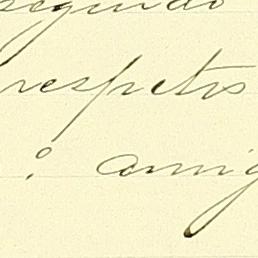 segundo
respetos
: amig